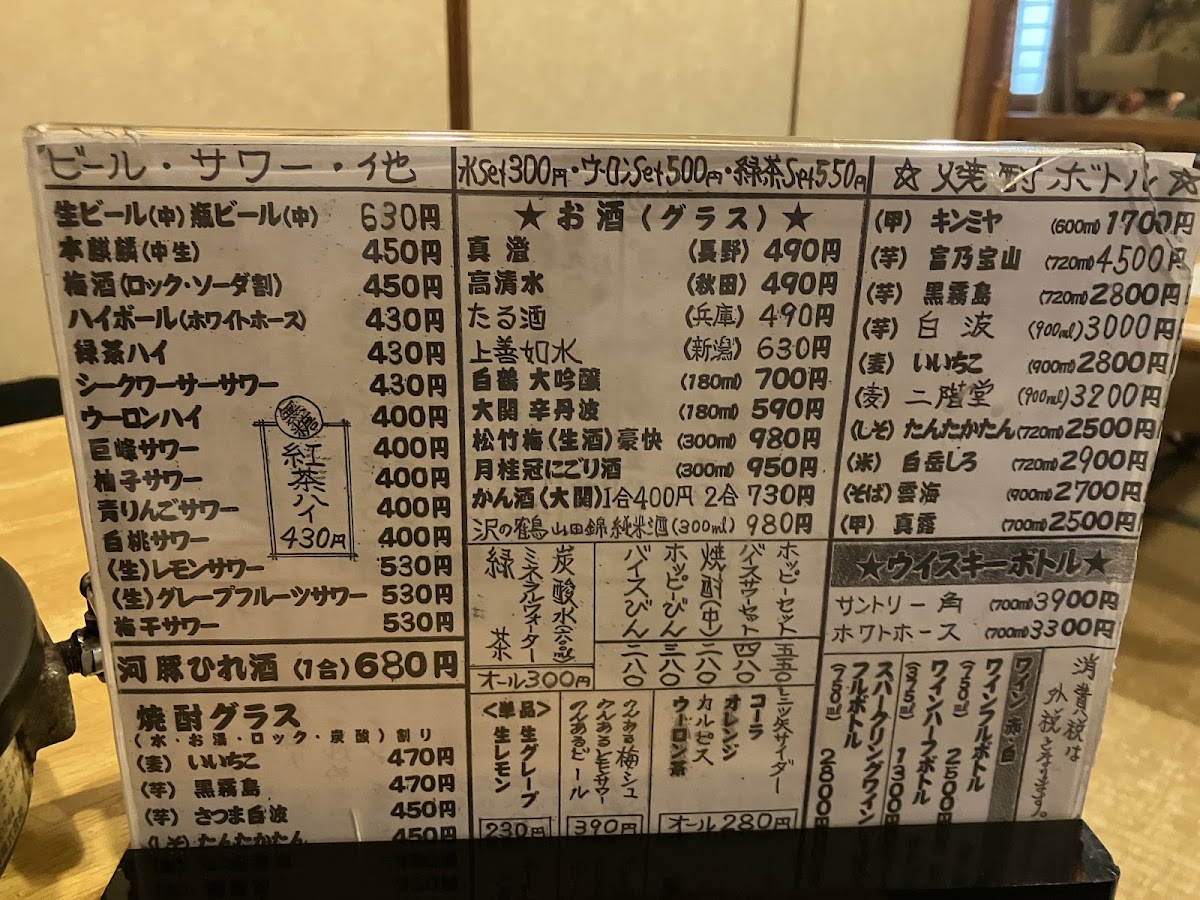 ビール・サワー・他
生ビール(中) 瓶ビール(中) 630円
本麒麟(中生) 450円
梅酒(ロック・ソーダ割) 450円
ハイボール(ホワイトホース) 430円
緑茶ハイ 430円
シークワーサーサワー 430円
ウーロンハイ 400円
巨峰サワー 400円
柚子サワー 400円
青りんごサワー 400円
白桃サワー 400円
(生)レモンサワー 530円
(生)グレープフルーツサワー 530円
梅干サワー 530円
無糖
紅茶ハイ
430円
河豚ひれ酒(1合) 680円
焼酎グラス
(水・お湯・ロック・炭酸)割り
(麦) いいちこ 470円
(芋) 黒霧島 470円
(芋) さつま白波 450円
(しそ) たんたかたん 450円
水Set300円・ウーロンSet500円・緑茶Set550円
★お酒(グラス)★
真澄 (長野) 490円
高清水 (秋田) 490円
たる酒 (兵庫) 490円
上善如水 (新潟) 630円
白鶴 大吟醸 (180ml) 700円
大関 辛丹波 (180ml) 590円
松竹梅(生酒)豪快 (300ml) 980円
月桂冠にごり酒 (300ml) 950円
かん酒(大関) 1合400円 2合 730円
沢の鶴山田錦純米酒(300ml) 980円
ホッピーセット 五五〇
バイスサワーセット 四八〇
焼酎(中) 二八〇
ホッピーびん 三八〇
バイスびん 二八〇
炭酸水
ミネラルウォーター
緑茶
オール300円
三ツ矢サイダー
コーラ
オレンジ
カルピス
ウーロン茶
オール 280円
のんある梅シュ
のんあるレモンサワー
のんあるビール
390円
<単品>
生グレープ
生レモン
230円
☆焼酎ボトル☆
(甲) キンミヤ (600ml) 1700円
(芋) 富乃宝山 (720ml) 4500円
(芋) 黒霧島 (720ml) 2800円
(芋) 白波 (900ml) 3000円
(麦) いいちこ (900ml) 2800円
(麦) 二階堂 (900ml) 3200円
(しそ) たんたかたん (720ml) 2500円
(米) 白岳しろ (720ml) 2900円
(そば) 雲海 (900ml) 2700円
(甲) 真露 (700ml) 2500円
★ウイスキーボトル★
サントリー角 (700ml) 3900円
ホワトホース (700ml) 3300円
消費税は
外税となります。
ワイン(赤・白)
ワインフルボトル (750ml) 2500円
ワインハーフボトル (375ml) 1300円
スパークリングワイン
フルボトル (750ml) 2800円